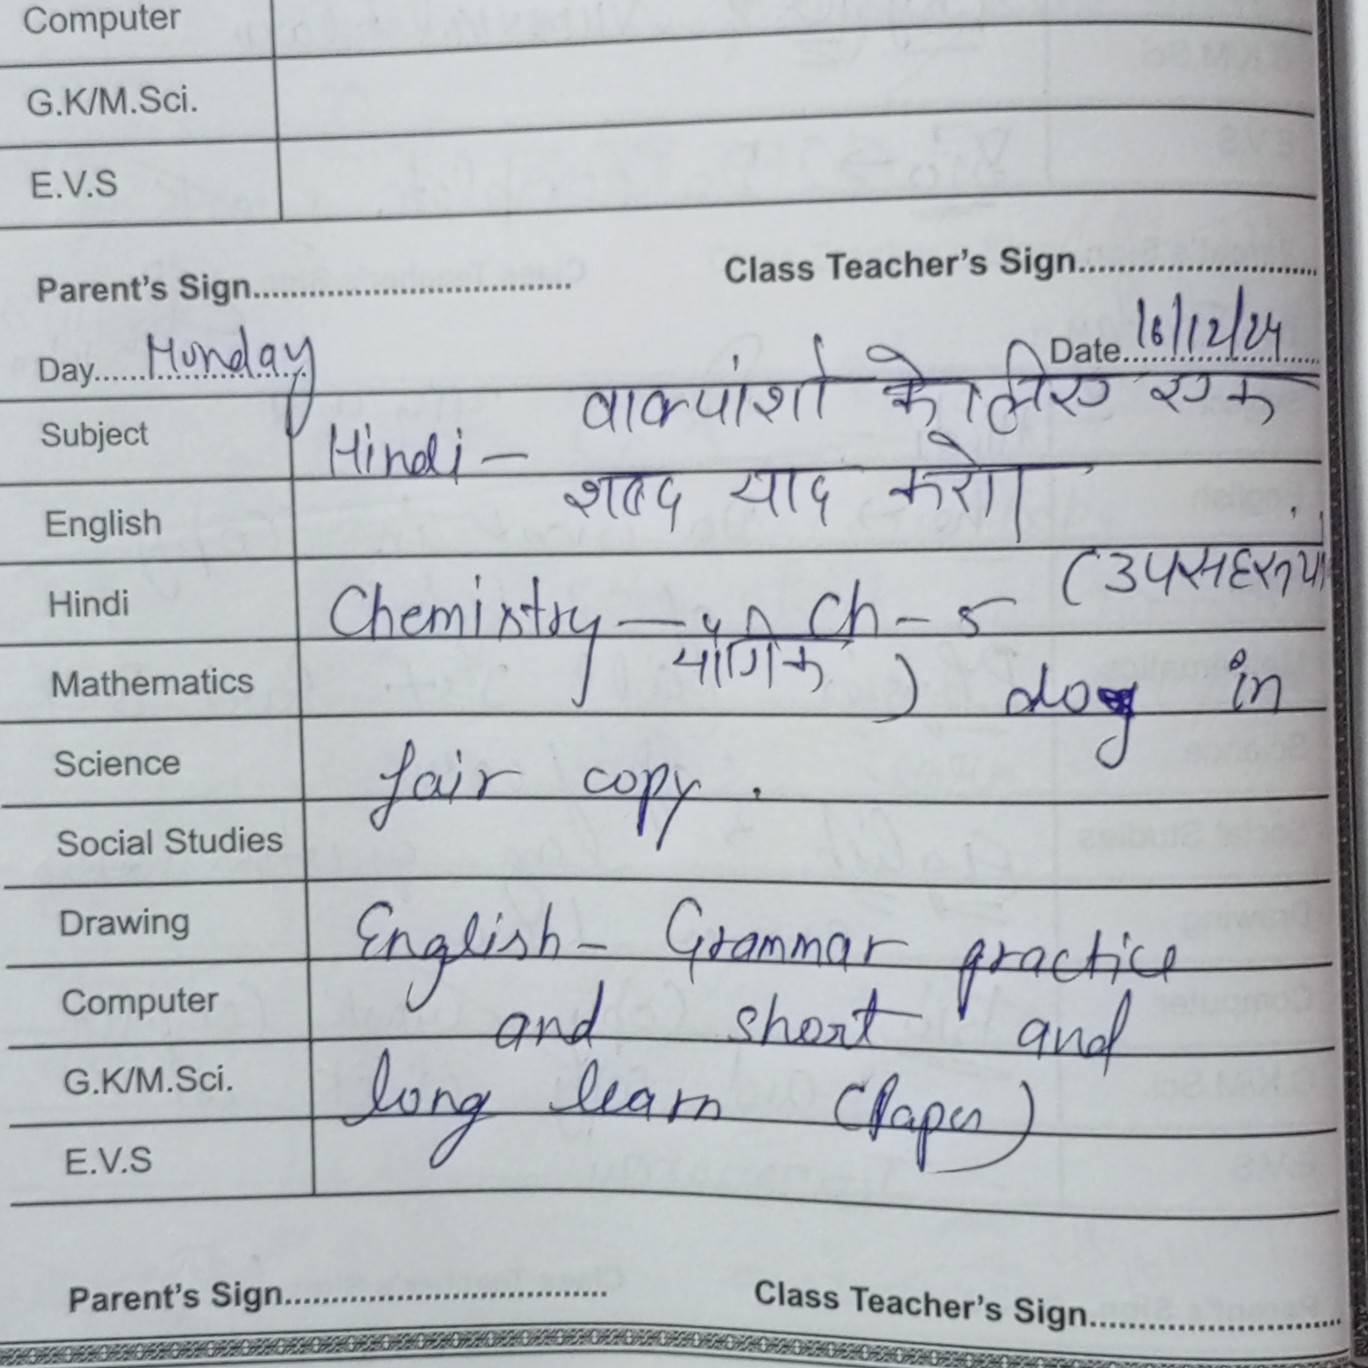 Computer
G.K/M.Sci.
E.V.S
Parent's Sign............................ Class Teacher's Sign............................
Day...... Monday Date.. 16/12/24
Subject
Hindi - वाक्यांशो के लिए एक
शब्द याद करो।
English
Hindi
Chemistry — Ch - 5 (उपसहसंयो
यौगिक ) do in
Mathematics
Science
fair copy .
Social Studies
Drawing
English - Grammar practice
Computer
and short and
G.K/M.Sci.
long learn (Paper)
E.V.S
Parent's Sign............................ Class Teacher's Sign............................